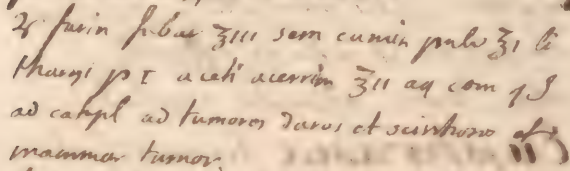 ℞ farin fabar ℥iii sem cumin pulv ℥i li
thargi p i aceti acerrim ℥ii aq com q s
ad catapl ad tumores duros et scirrhoso
mammar tumor.